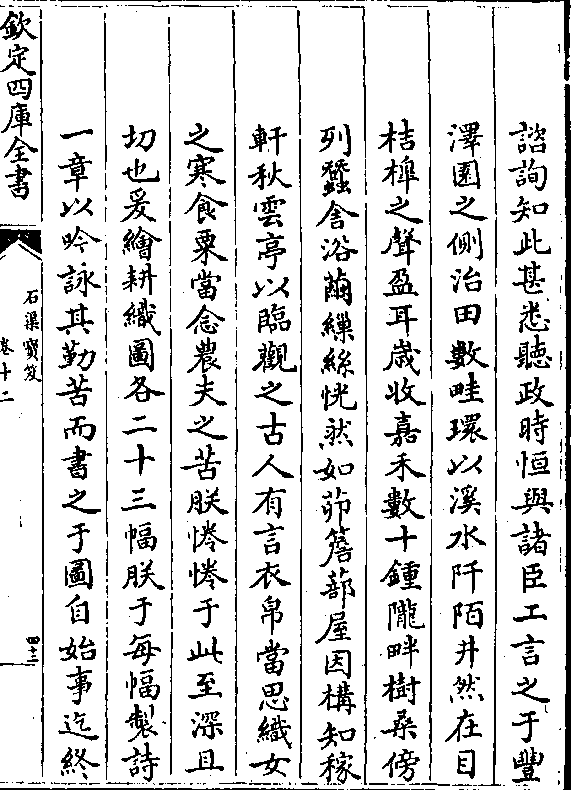 諮詢知此甚悉聽政時恒與諸臣工言之于豐
澤園之側治田數畦環以溪水阡陌井然在目
桔橰之聲盈耳歲收嘉禾數十鍾隴畔樹桑傍
列蠶舍浴繭繅絲恍然如茆簷蔀屋因構知稼
軒秋雲亭以臨觀之古人有言衣帛當思織女
之寒食粟當念農夫之苦朕惓惓于此至深且
切也爰繪耕織圖各二十三幅朕于每幅製詩
一章以吟詠其勤苦而書之于圖自始事迄終
欽定四庫全書
石渠寶笈
卷十二
四十二